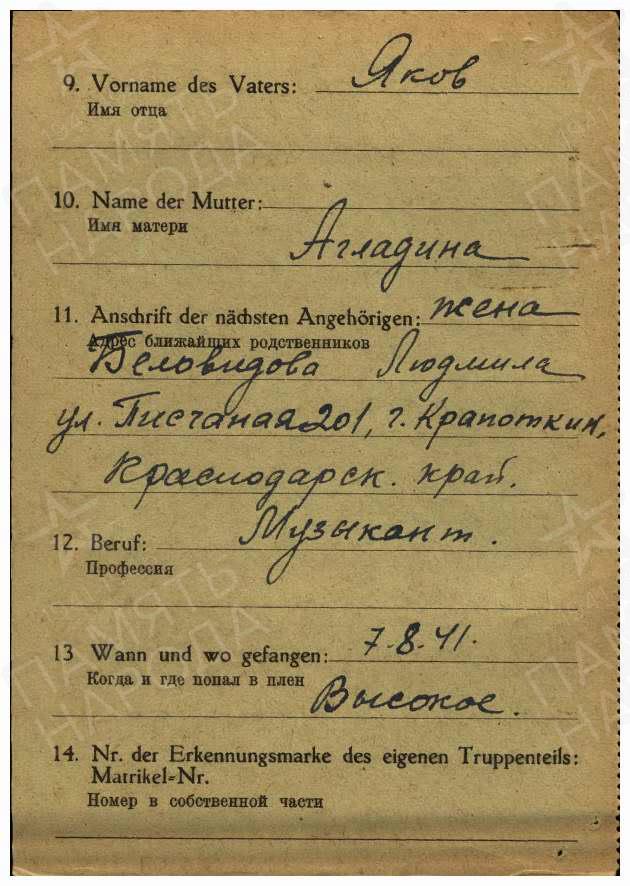 9. Vorname des Vaters: Яков
Имя отца
10. Name der Mutter:
Имя матери
Агладина
11. Anschrift der nächsten Angehörigen: жена
Адрес ближайших родственников
Беловидова Людмила
ул. Писчаная 201, г. Крапоткин,
Краснодарск. край.
12. Beruf: Музыкант.
Профессия
13 Wann und wo gefangen: 7.8.41.
Когда и где попал в плен
Высокое.
14. Nr. der Erkennungsmarke des eigenen Truppenteils:
Matrikel-Nr.
Номер в собственной части
ПАМЯТЬ
НАРОДА